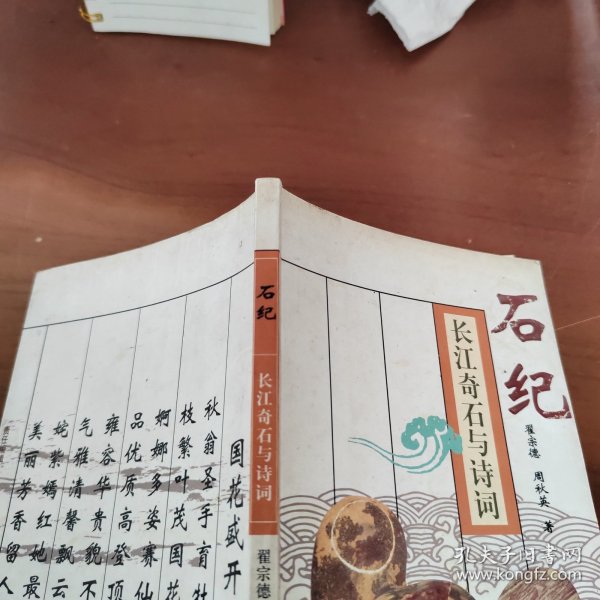 石纪
长江奇石与诗词
翟宗德 周秋英 著
石纪
长江奇石与诗词
翟宗德
国花盛开
秋翁圣手育牡
枝繁叶茂国花
婀娜多姿赛仙
品优质高登顶
雍容华贵貌不
气雅清馨飘云
姹紫嫣红她最
美丽芳香留人
孔夫子旧书网
www.kongfz.com